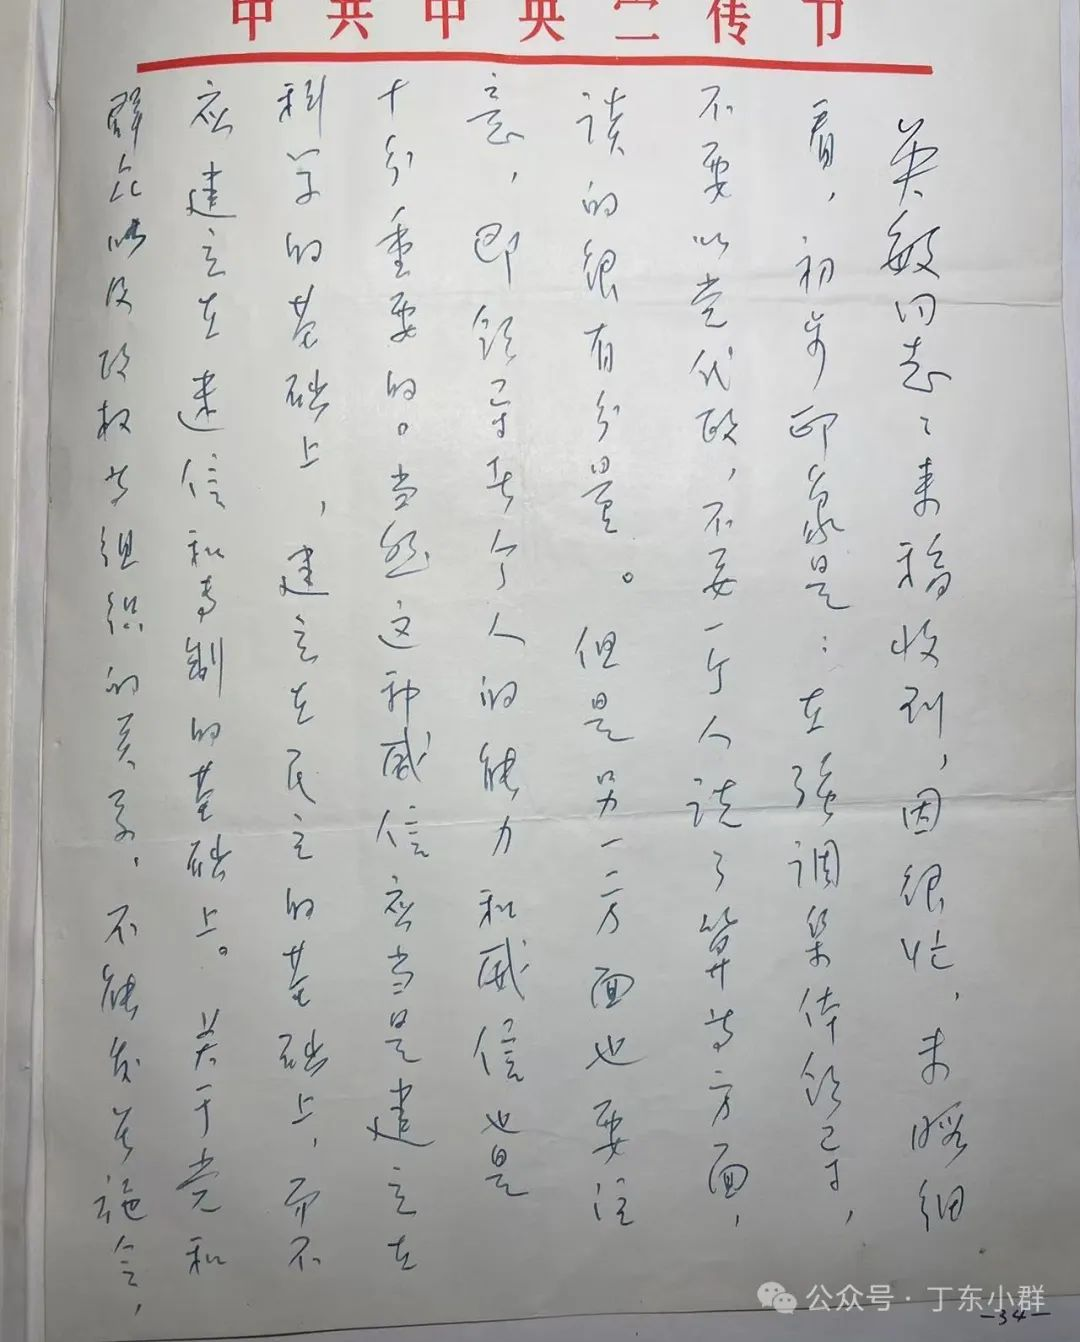 中共中央宣传部
英敏同志：来稿收到，因很忙，未暇细
看，初步印象是：在强调集体领导，
不要以党代政，不要一个人说了算等方面，
谈的很有分量。但是另一方面也要注
意，即领导者个人的能力和威信也是
十分重要的。当然这种威信应当是建立在
科学的基础上，建立在民主的基础上，而不
应建立在迷信和专制的基础上。关于党和
群众以及政权等组织的关系，不能发号施令，
公众号·丁东小群
-34-